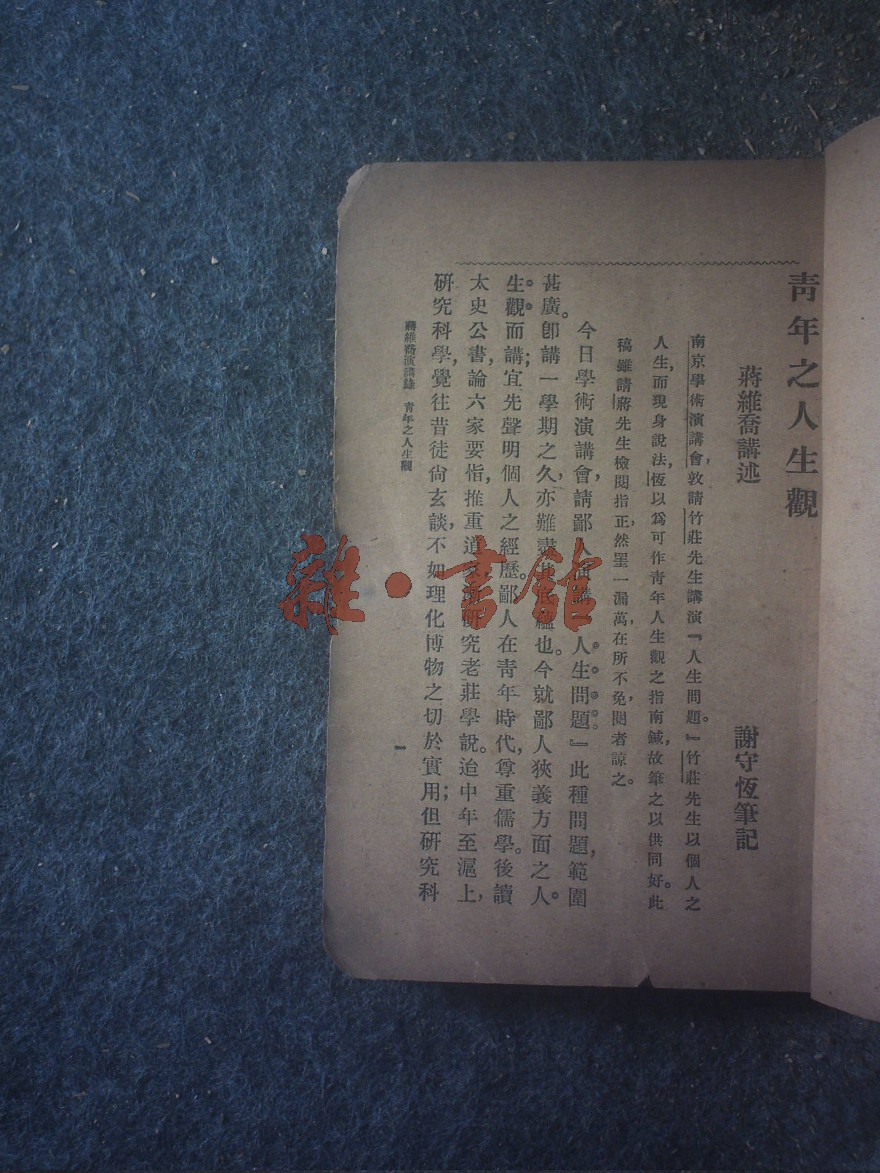 青年之人生觀
蔣維喬講述　謝守恆筆記
南京學術演講會，敦請竹莊先生講演『人生問題。』竹莊先生以個人之
人生，而現身說法，恆以爲可作青年人生觀之指南鍼，故筆之以供同好。此
稿雖請蔣先生檢閱指正，然罣一漏萬，在所不免，閱者諒之。
今日學術演講會，請鄙人『人生問題』此種問題，範圍
甚廣。卽講一學期之久，亦難盡也。今就鄙人狹義方面之人
生觀而講；宜先聲明個人之經歷。鄙人在青年時代，尊重儒學。後讀
太史公書，論六家要恉，推重道研究老莊學說。迨中年至滬上，
研究科學，覺往昔徒尙玄談，不如理化博物之切於實用；但研究科
蔣維喬演講錄　青年之人生觀
一
雜·書館